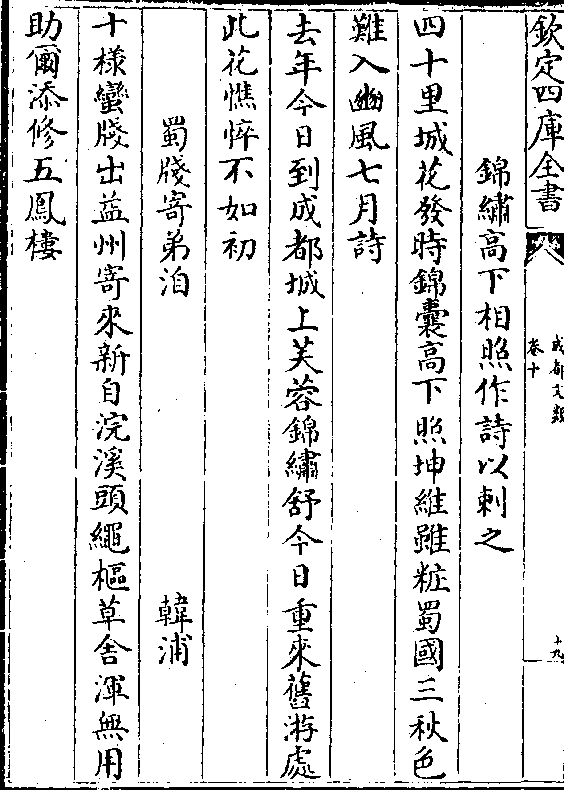 欽定四庫全書
成都文類
卷十
十九
錦繡高下相照作詩以刺之
四十里城花發時錦囊高下照坤維雖粧蜀國三秋色
難入豳風七月詩
去年今日到成都城上芙蓉錦繡舒今日重來舊游處
此花憔悴不如初
蜀牋寄弟洎 韓浦
十樣蠻牋出益州寄來新自浣溪頭繩樞草舍渾無用
助爾添修五鳳樓